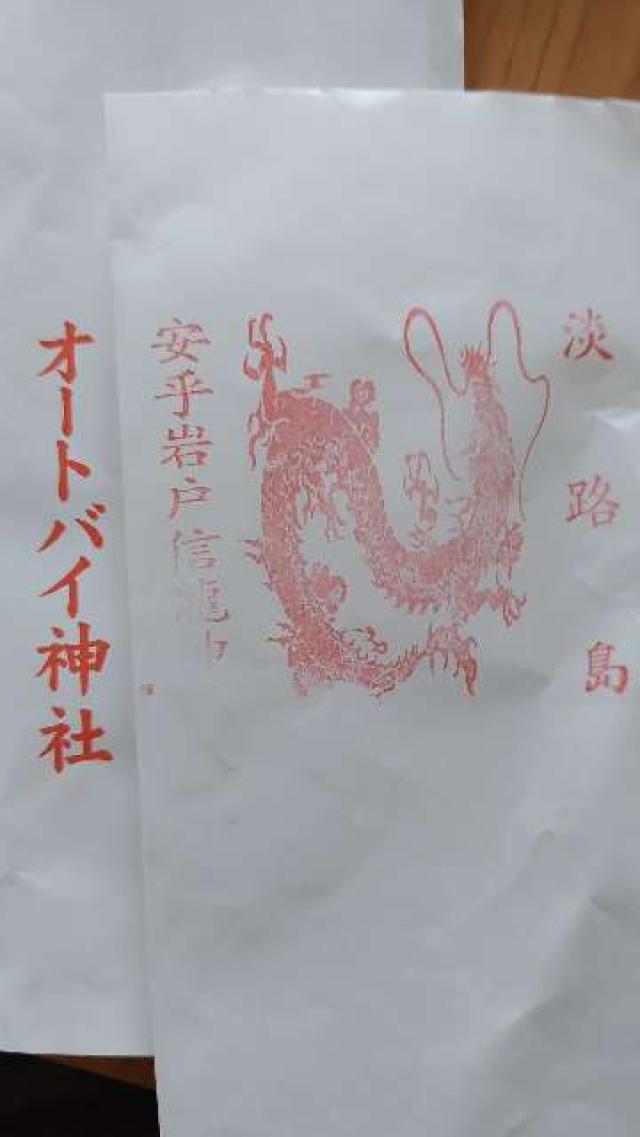 淡路島
安乎岩戸信龍
オートバイ神社